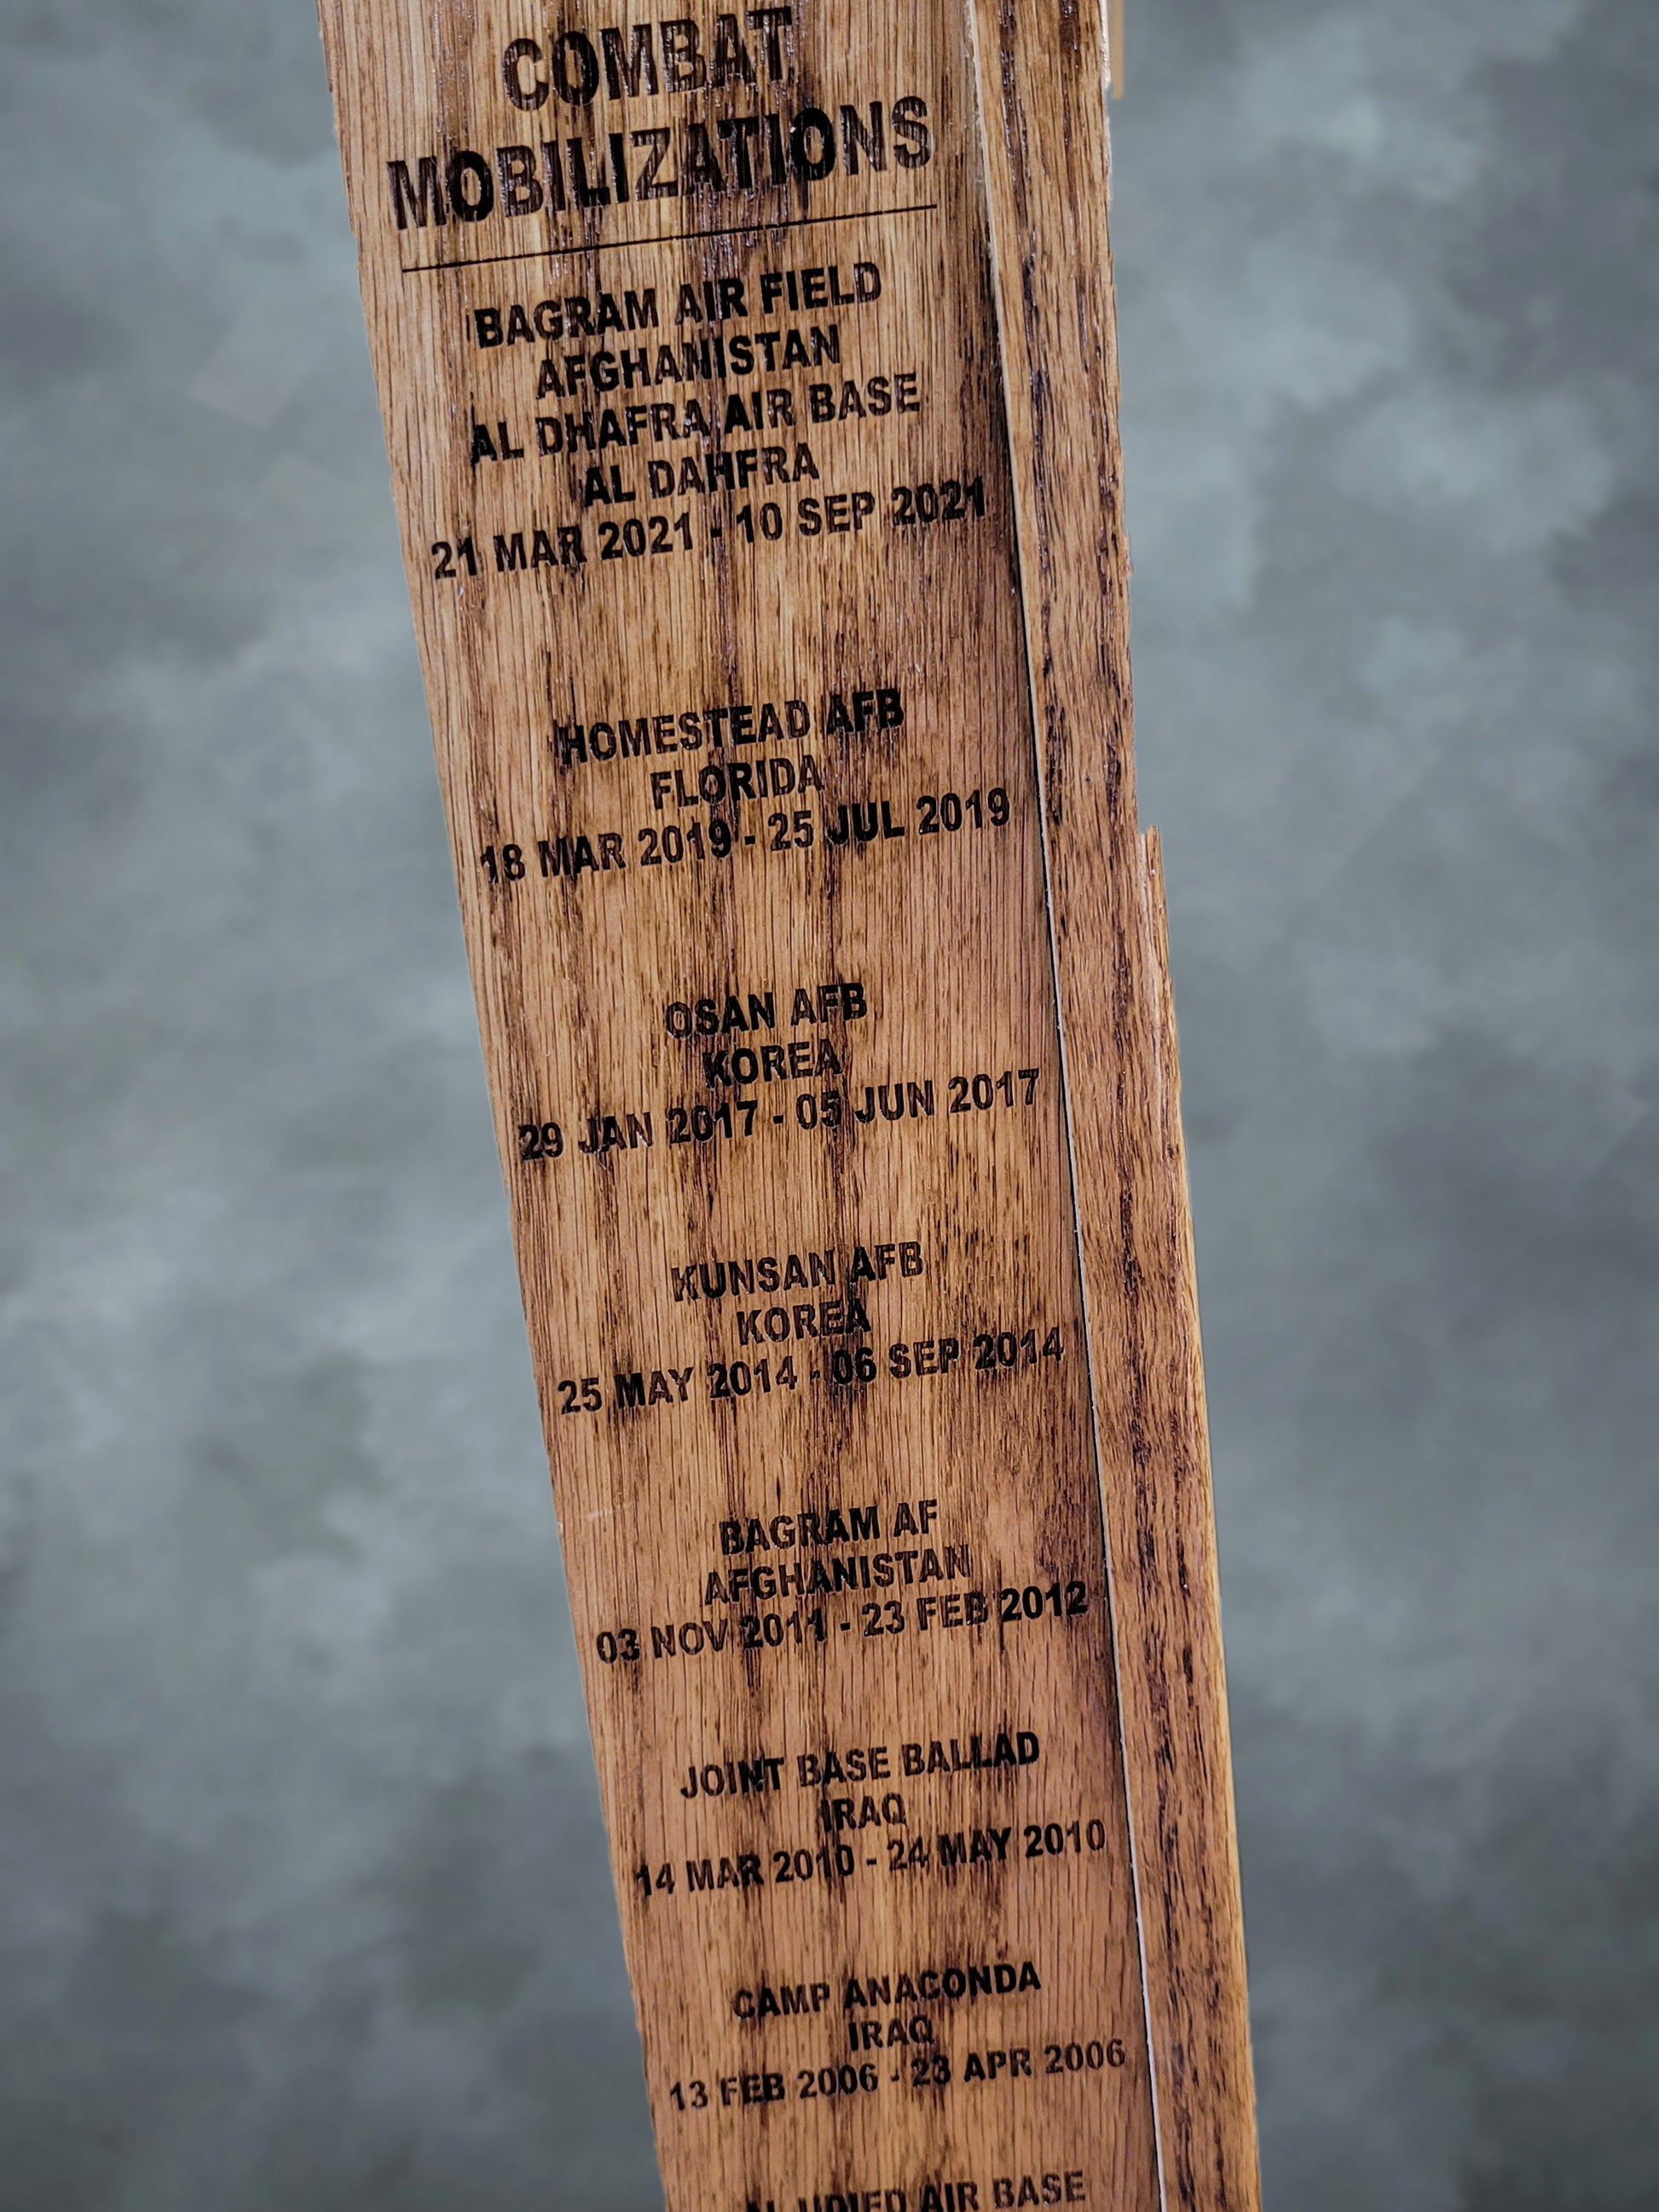 COMBAT
MOBILIZATIONS
BAGRAM AIR FIELD
AFGHANISTAN
AL DHAFRA AIR BASE
AL DAHFRA
21 MAR 2021 - 10 SEP 2021
HOMESTEAD AFB
FLORIDA
18 MAR 2019 - 25 JUL 2019
OSAN AFB
KOREA
29 JAN 2017 - 05 JUN 2017
KUNSAN AFB
KOREA
25 MAY 2014 - 06 SEP 2014
BAGRAM AF
AFGHANISTAN
03 NOV 2011 - 23 FEB 2012
JOINT BASE BALLAD
IRAQ
14 MAR 2010 - 24 MAY 2010
CAMP ANACONDA
IRAQ
13 FEB 2006 - 23 APR 2006
AL UDIED AIR BASE